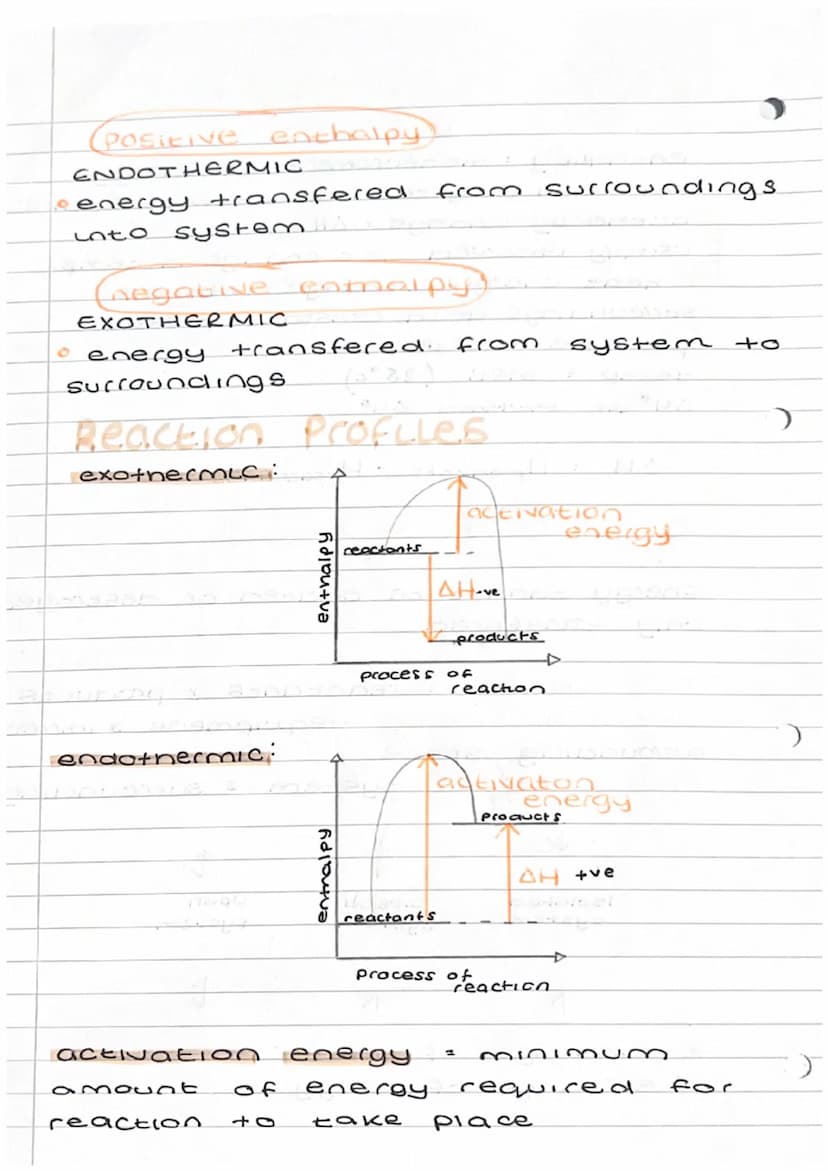 positive enthalpy
ENDOTHERMIC
• energy transfered from surroundings
into system
negative enthalpy
EXOTHERMIC
• energy transfered from system to
surroundings
Reaction Profiles
exothermic:
enthalpy
reactants
activation
energy
ΔH-ve
products
process of
reaction
endothermic:
enthalpy
reactants
activaton
energy
products
ΔH +ve
process of
reaction
activation energy = minimum
amount of energy required for
reaction to take place